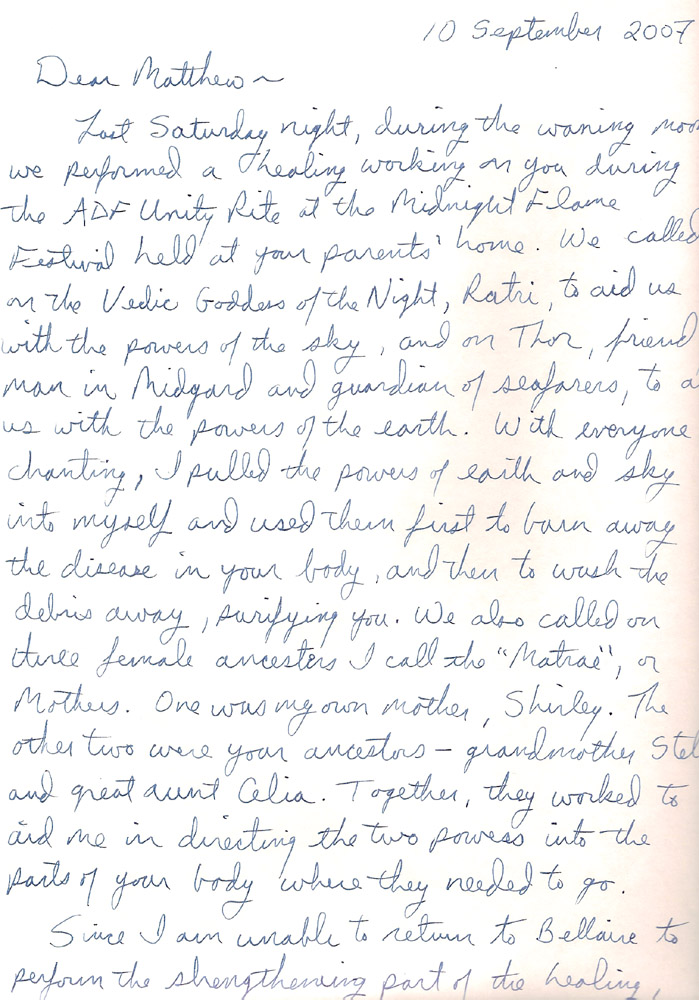 10 September 2007
Dear Matthew ~
Last Saturday night, during the waning moo
we performed a healing working on you during
the ADF Unity Rite at the Midnight Flame
Festival held at your parents' home. We called
on the Vedic Goddess of the Night, Ratri, to aid us
with the powers of the sky, and on Thor, friend
man in Midgard and guardian of seafarers, to a
us with the powers of the earth. With everyone
chanting, I pulled the powers of earth and sky
into myself and used them first to burn away
the disease in your body, and then to wash the
debris away, purifying you. We also called on
three female ancestors I call the "Matrae", or
Mothers. One was my own mother, Shirley. The
other two were your ancestors - grandmother Stel
and great aunt Celia. Together, they worked to
aid me in directing the two powers into the
parts of your body where they needed to go.
Since I am unable to return to Bellaire to
perform the strengthening part of the healing,